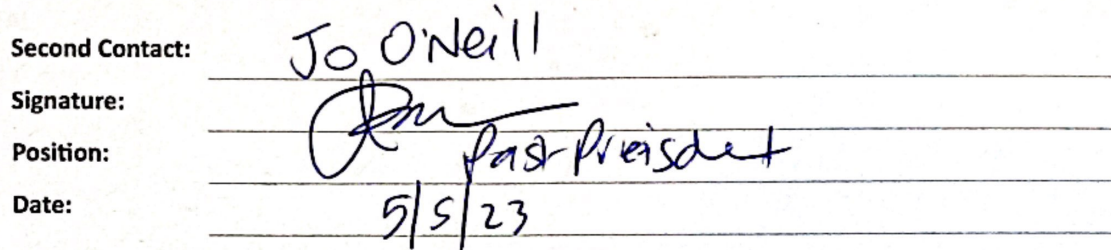 Second Contact: Jo O'Neill
Signature:
Position: Past Preisdet
Date: 5/5/23